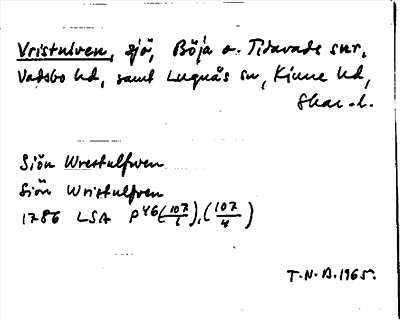 Vristulven, sjö, Böja o. Tidavads snr,
Vadsbo hd, samt Lugnås sn, Kinne hd,
Skar. l.
Siön Wrestulfwen
Siön Wristulfven
1786 LSA P46(107/1), (107/4)
T.N.A. 1965.